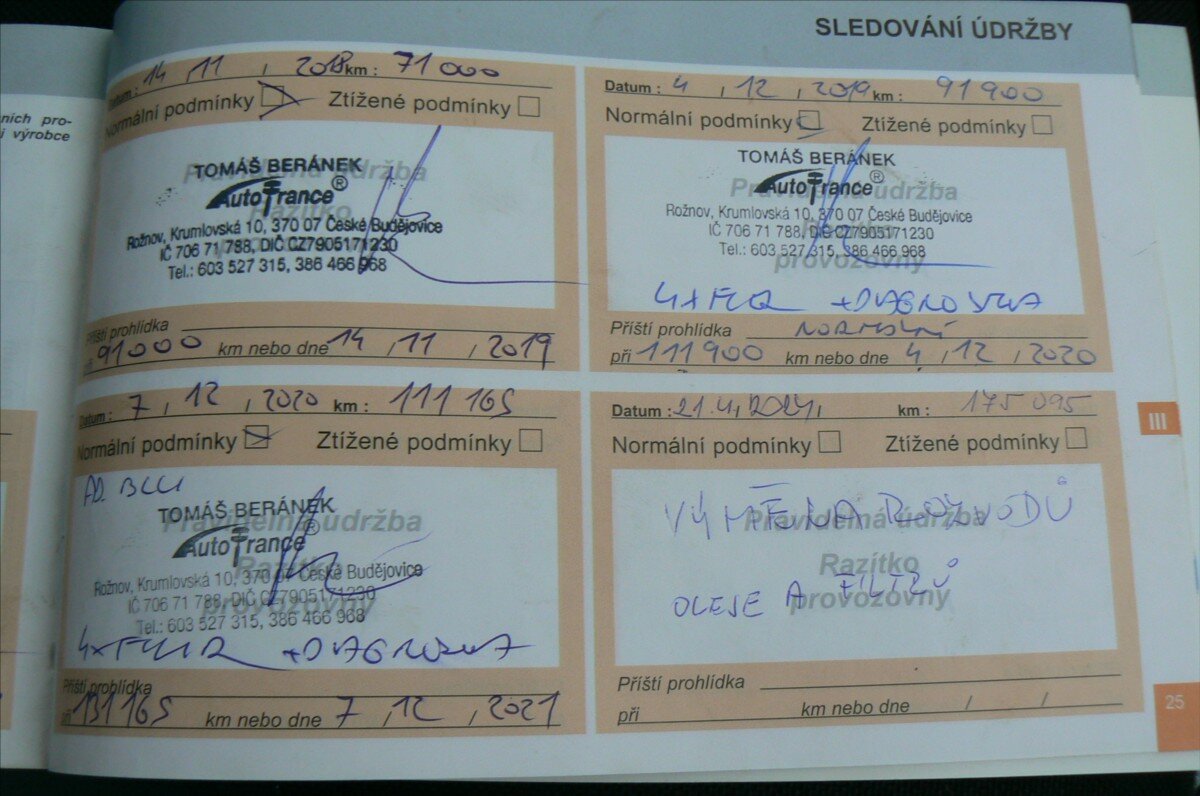 SLEDOVÁNÍ ÚDRŽBY
ních pro-
i výrobce
Datum : 14 , 11 , 2018 km : 71 000
Normální podmínky Ztížené podmínky
Pravidelná údržba
Razítko
TOMÁŠ BERÁNEK
AutoTrance®
Rožnov, Krumlovská 10, 370 07 České Budějovice
IČ 706 71 788, DIČ CZ7905171230
Tel.: 603 527 315, 386 466 968
Příští prohlídka
při 91000 km nebo dne 14 , 11 , 2019
Datum : 4 , 12 , 2019 km : 91 900
Normální podmínky Ztížené podmínky
Pravidelná údržba
Razítko
provozovny
TOMÁŠ BERÁNEK
AutoTrance®
Rožnov, Krumlovská 10, 370 07 České Budějovice
IČ 706 71 788, DIČ CZ7905171230
Tel.: 603 527 315, 386 466 968
4x FILTR + DIAGNOSTIKA
Příští prohlídka NORMÁLNÍ
při 111900 km nebo dne 4 , 12 , 2020
Datum : 7 , 12 , 2020 km : 111 165
Normální podmínky Ztížené podmínky
AD BLUE
Pravidelná údržba
Razítko
provozovny
TOMÁŠ BERÁNEK
AutoTrance®
Rožnov, Krumlovská 10, 370 07 České Budějovice
IČ 706 71 788, DIČ CZ7905171230
Tel.: 603 527 315, 386 466 968
4x FILTR + DIAGNOSTIKA
Příští prohlídka
při 131165 km nebo dne 7 , 12 , 2021
Datum : 21.4, 2024, km : 175 095
Normální podmínky Ztížené podmínky
Pravidelná údržba
Razítko
provozovny
VÝMĚNA ROZVODŮ
OLEJE A FILTRŮ
Příští prohlídka
při km nebo dne / /
III
25